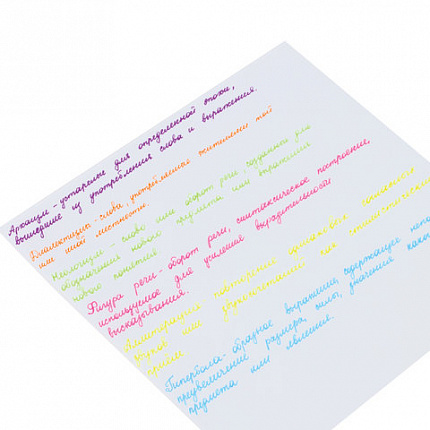 Архаизм - устарелые для определенной эпохи,
вышедшие из употребления слова и выражения.
Диалектизмы - слова, употребляемые жителями той
или иной местности.
Неологизм - слово или оборот речи, созданный для
обозначения нового предмета или выражения
нового понятия
Фигура речи - оборот речи, синтаксическое построение,
используемое для усиления выразительности
высказывания.
Аллитерация - повторение одинаковых,
звуков или как стилистический
приём.
Гипербола - образное выражение, содержащее
преувеличение размера, силы, значения
предмета или явления.